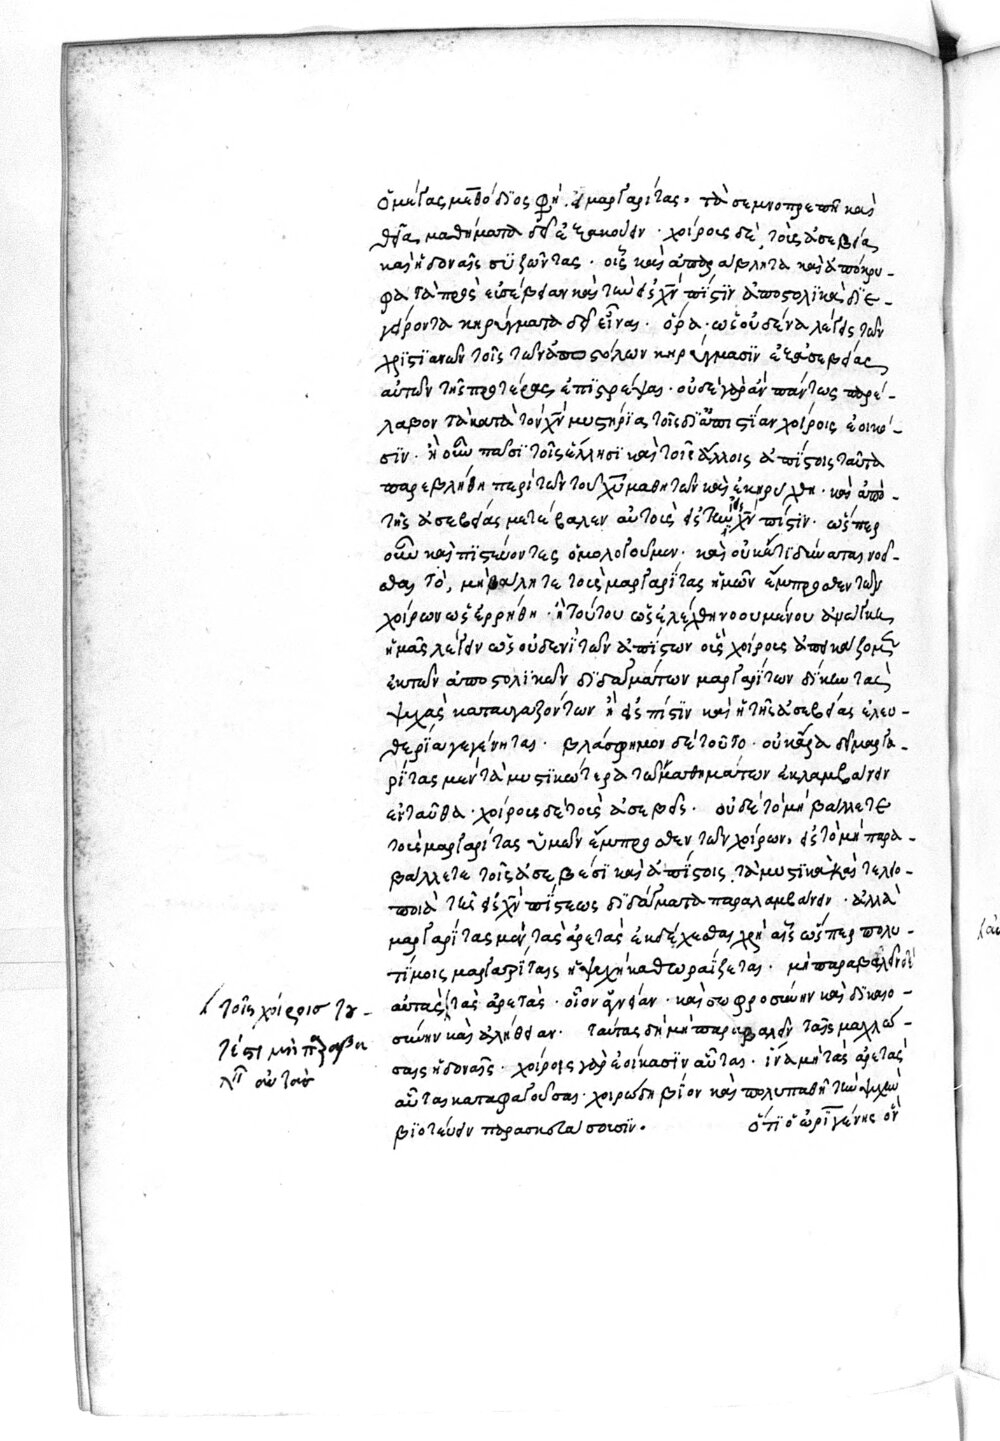 ὁ μέγας μεθόδιος φη μαργαρίτας, τὰ σεμνοπρεπῆ καὶ
θεῖα μαθήματα δεῖ ἐξακούειν · χοίροις δὲ, τοὺς ἀσεβείᾳ
καὶ ἡδοναῖς συζῶντας · οἷς καὶ ἀπαράβλητα καὶ ἀπόκρυ-
φα τὰ πρὸς εὐσέβειαν καὶ τὴν εἰς χν πίστιν ἀποστολικὰ διε-
γείροντα κηρύγματα δεῖ εἶναι · ὅρα · ὡς οὐδένα λέγεις τῶν
χριστιανῶν τοῖς τῶν ἀποστόλων κηρύγμασιν ἐξ ἀσεβείας
αὐτῶν τῆς προτέρας ἐπιστρέψαι · οὐδὲ γὰρ ἂν πάντως παρέ-
λαβον τὰ κατὰ τὸν χν μυστήρια τοῖς δι ἀπιστίαν χοίροις ἐοικό-
σιν · ἢ οὖν πᾶσι τοῖς ἕλλησι καὶ τοῖς ἄλλοις ἀπίστοις ταῦτα
παρεβλήθη περὶ τῶν τοῦ χυ μαθητῶν καὶ ἐκηρύχθη · καὶ ἀπὸ
τῆς ἀσεβείας μετέβαλεν αὐτοὺς εἰς τὴν χν πίστιν · ὥσπερ
οὖν καὶ πιστεύοντες ὁμολογοῦμεν · καὶ οὐκέτι δύναται νοεῖ-
σθαι τὸ, μὴ βάλητε τοὺς μαργαρίτας ἡμῶν ἔμπροσθεν τῶν
χοίρων ὡς ἐρρήθη · ἢ τούτου ὡς ἐλέχθη νοουμένου ἀνάγκη
ἡμᾶς λέγειν ὡς οὐδενὶ τῶν ἀπίστων οὓς χοίροις ἀπεικάζομεν
ἐκ τῶν ἀποστολικῶν διδαγμάτων μαργαριτῶν δίκην τὰς
ψυχὰς καταυγαζόντων ἡ εἰς πίστιν καὶ ἡ τῆς ἀσεβείας ἐλευ-
θερία γεγένηται · βλάσφημον δὲ τοῦτο · οὐκ ἄρα δεῖ μαργα-
ρίτας μὲν τὰ μυστικώτερα τῶν μαθημάτων ἐκλαμβάνειν
ἐνταῦθα · χοίρους δὲ τοὺς ἀσεβεῖς · οὐδὲ τὸ μὴ βάλλετε
τοὺς μαργαρίτας ὑμῶν ἔμπροσθεν τῶν χοίρων, εἰς τὸ μὴ παρα-
βάλλετε τοῖς ἀσεβέσι καὶ ἀπίστοις τὰ μυστικὰ καὶ τελειο-
ποιὰ τῆς εἰς χν πίστεως διδάγματα παραλαμβάνειν · ἀλλὰ
μαργαρίτας μὲν τὰς ἀρετὰς ἐκδέχεσθαι χρὴ αἷς ὥσπερ πολυ-
τίμοις μαργαρίταις ἡ ψυχὴ καθωραΐζεται · μὴ παραβάλλειν δὲ
αὐτὰς τὰς ἀρετὰς · οἷον ἁγνείαν · καὶ σωφροσύνην καὶ δικαιο-
σύνην καὶ ἀλήθειαν · ταύτας δὴ μὴ παραβαλεῖν ταῖς μαχλώ-
σαις ἡδοναῖς · χοίροις γὰρ ἐοίκασιν αὗται · ἵνα μὴ τὰς ἀρετὰς
αὗται καταφαγοῦσαι · χοιρώδη βίον καὶ πολυπαθῆ τὴν ψυχὴν
βιοτεύειν παρασκευάσωσιν. ὅτι ὁ ὠριγένης ὃν
τοῖς χοίροις του-
τέστι μὴ παραβα
λ αὐτὰς